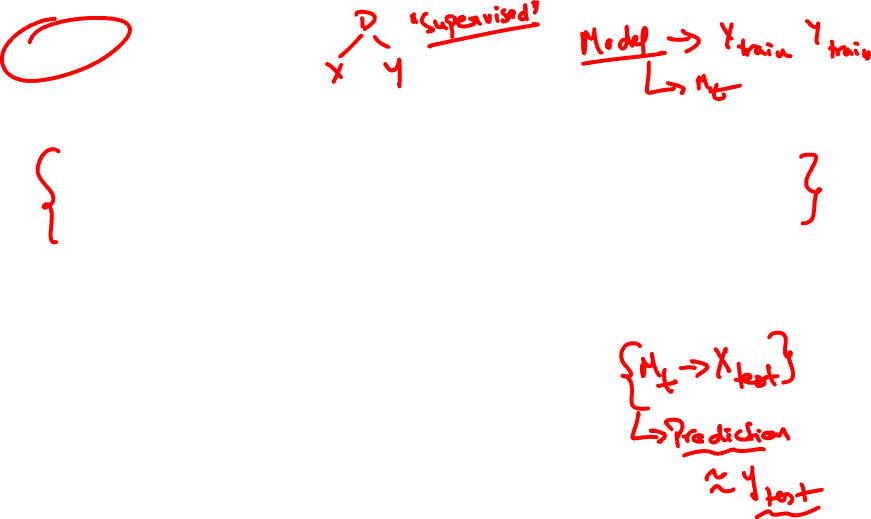 D "Supervised"
X Y
Model → X train Y train
↳ Mt
{ }
{Mt → X test}
↳ Prediction
≈ y test